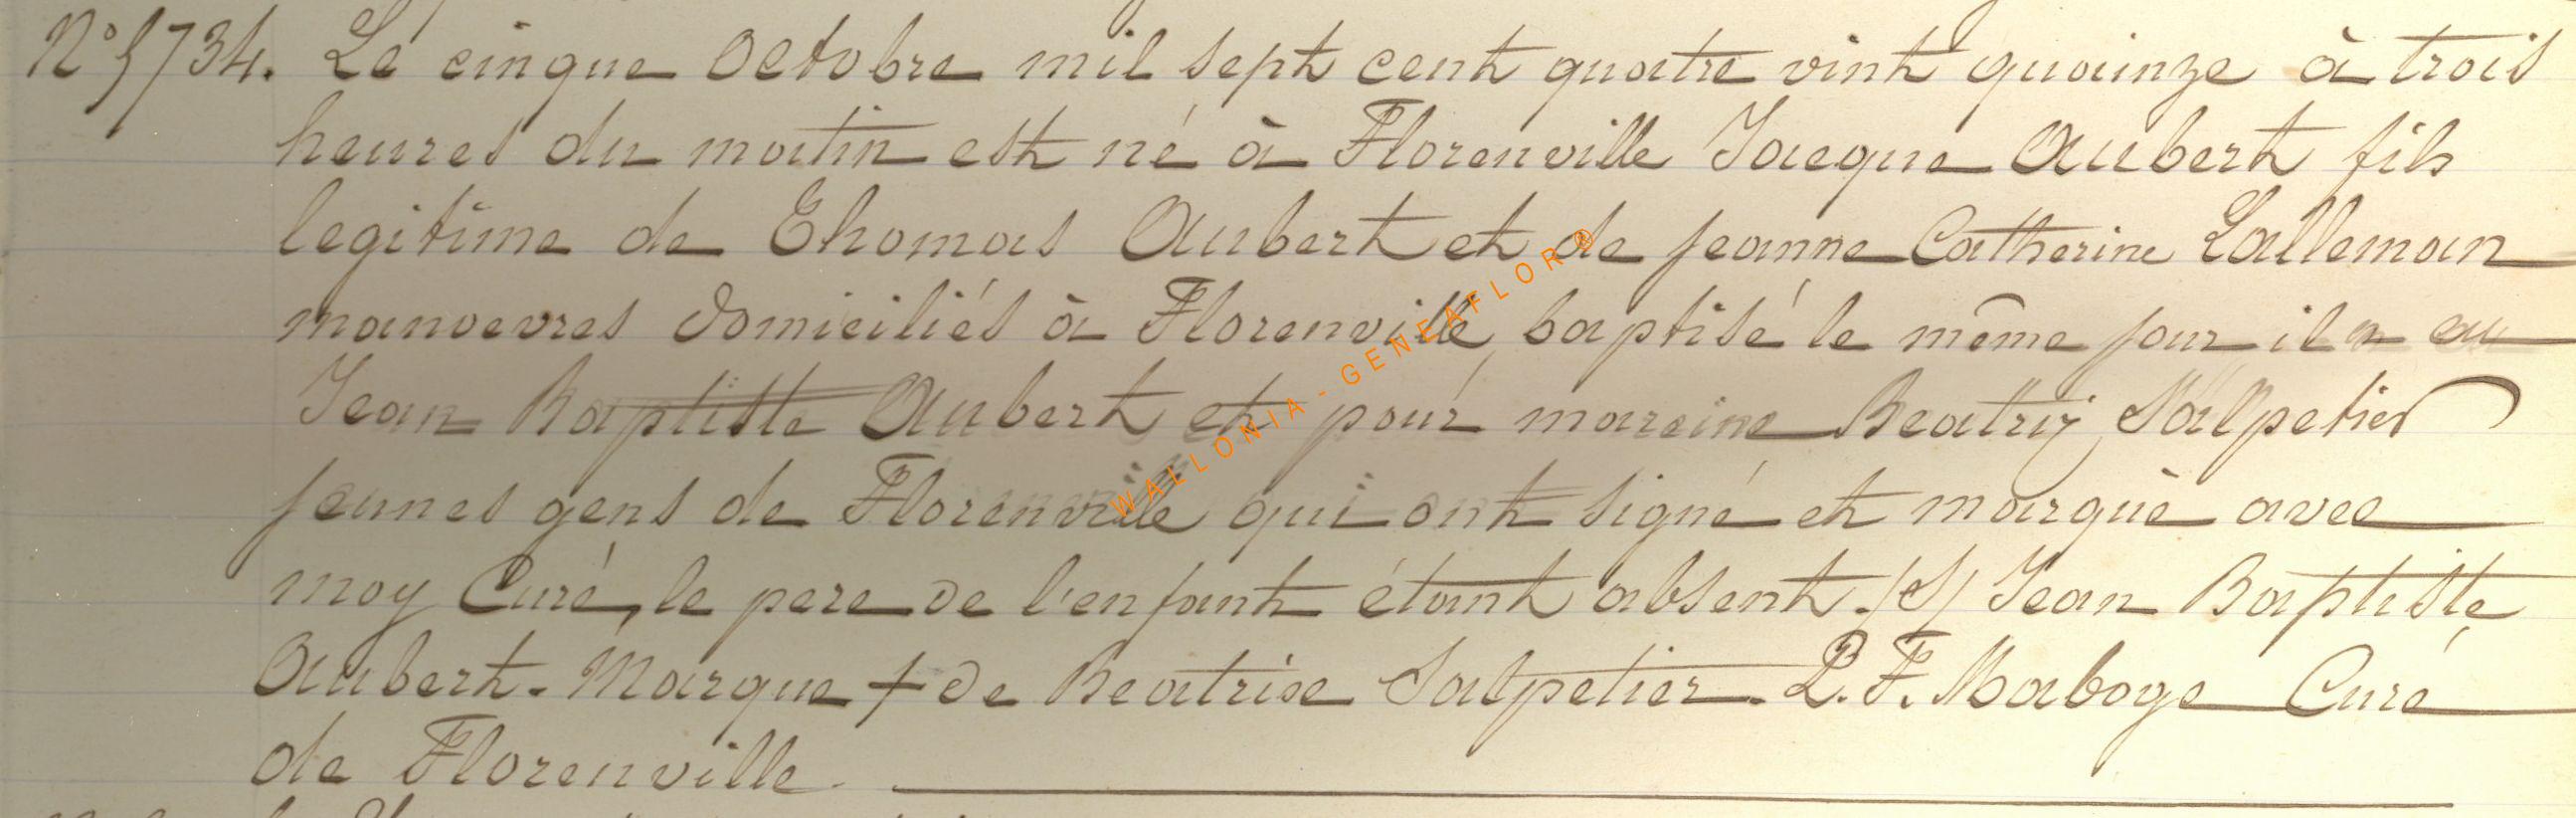 N° 5734. Le cinque Octobre mil sept cent quatre vint quainze à trois
heures du matin est né à Florenville Jacque Aubert fils
legitime de Thomas Aubert et de jeanne Catherine Lalleman
manoevres domiciliés à Florenville baptisé le même jour il a eu
Jean Baptiste Aubert et pour mareine Beatrix Salpetier
jeunes gens de Florenville qui ont signé et marqué avec
moy Curé, le pere de l'enfant étant absent. /S/ Jean Baptiste
Aubert. Marque + de Beatrise Salpetier. P. F. Maboge Curé
de Florenville.
WALLONIA - GENEAFLOR ®